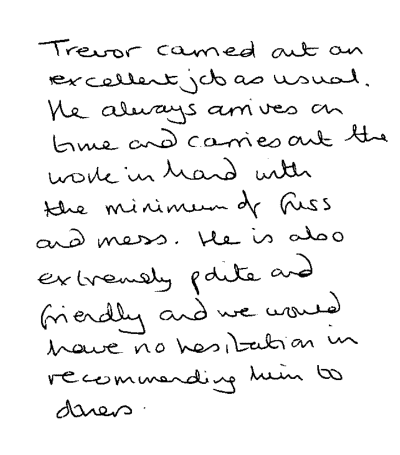 Trevor carried out an
excellent job as usual.
He always arrives on
time and carries out the
work in hand with
the minimum of fuss
and mess. He is also
extremely polite and
friendly and we would
have no hesitation in
recommending him to
others.